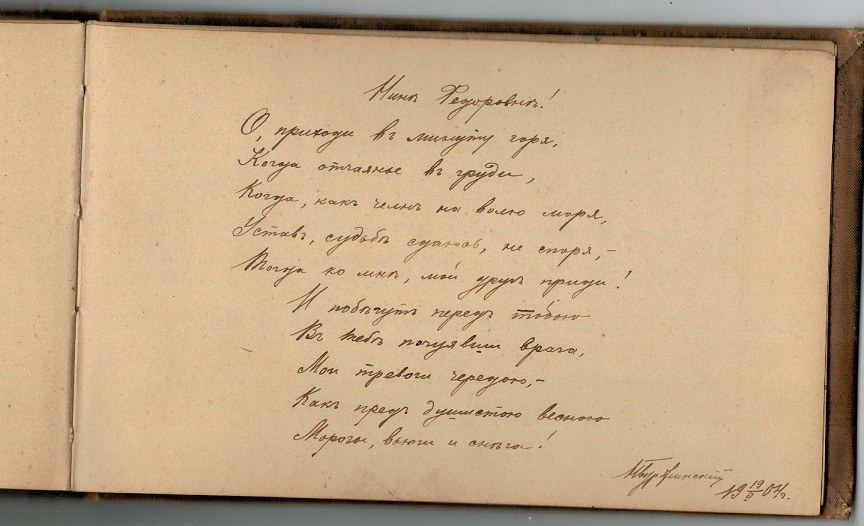 Нинѣ Ѳедоровнѣ!
О, приходи въ минуту горя,
Когда отчаянье въ груди,
Когда, какъ челнъ на волю моря,
Уставъ, судьбѣ сдаюсь, не споря,–
Тогда ко мнѣ, мой другъ приди!
И побѣгутъ передъ тобою
Въ тебѣ почуявши врага,
Мои тревоги чередою,–
Какъ предъ душистою весною
Морозы, вьюги и снѣга!
19 19/II 04 г.